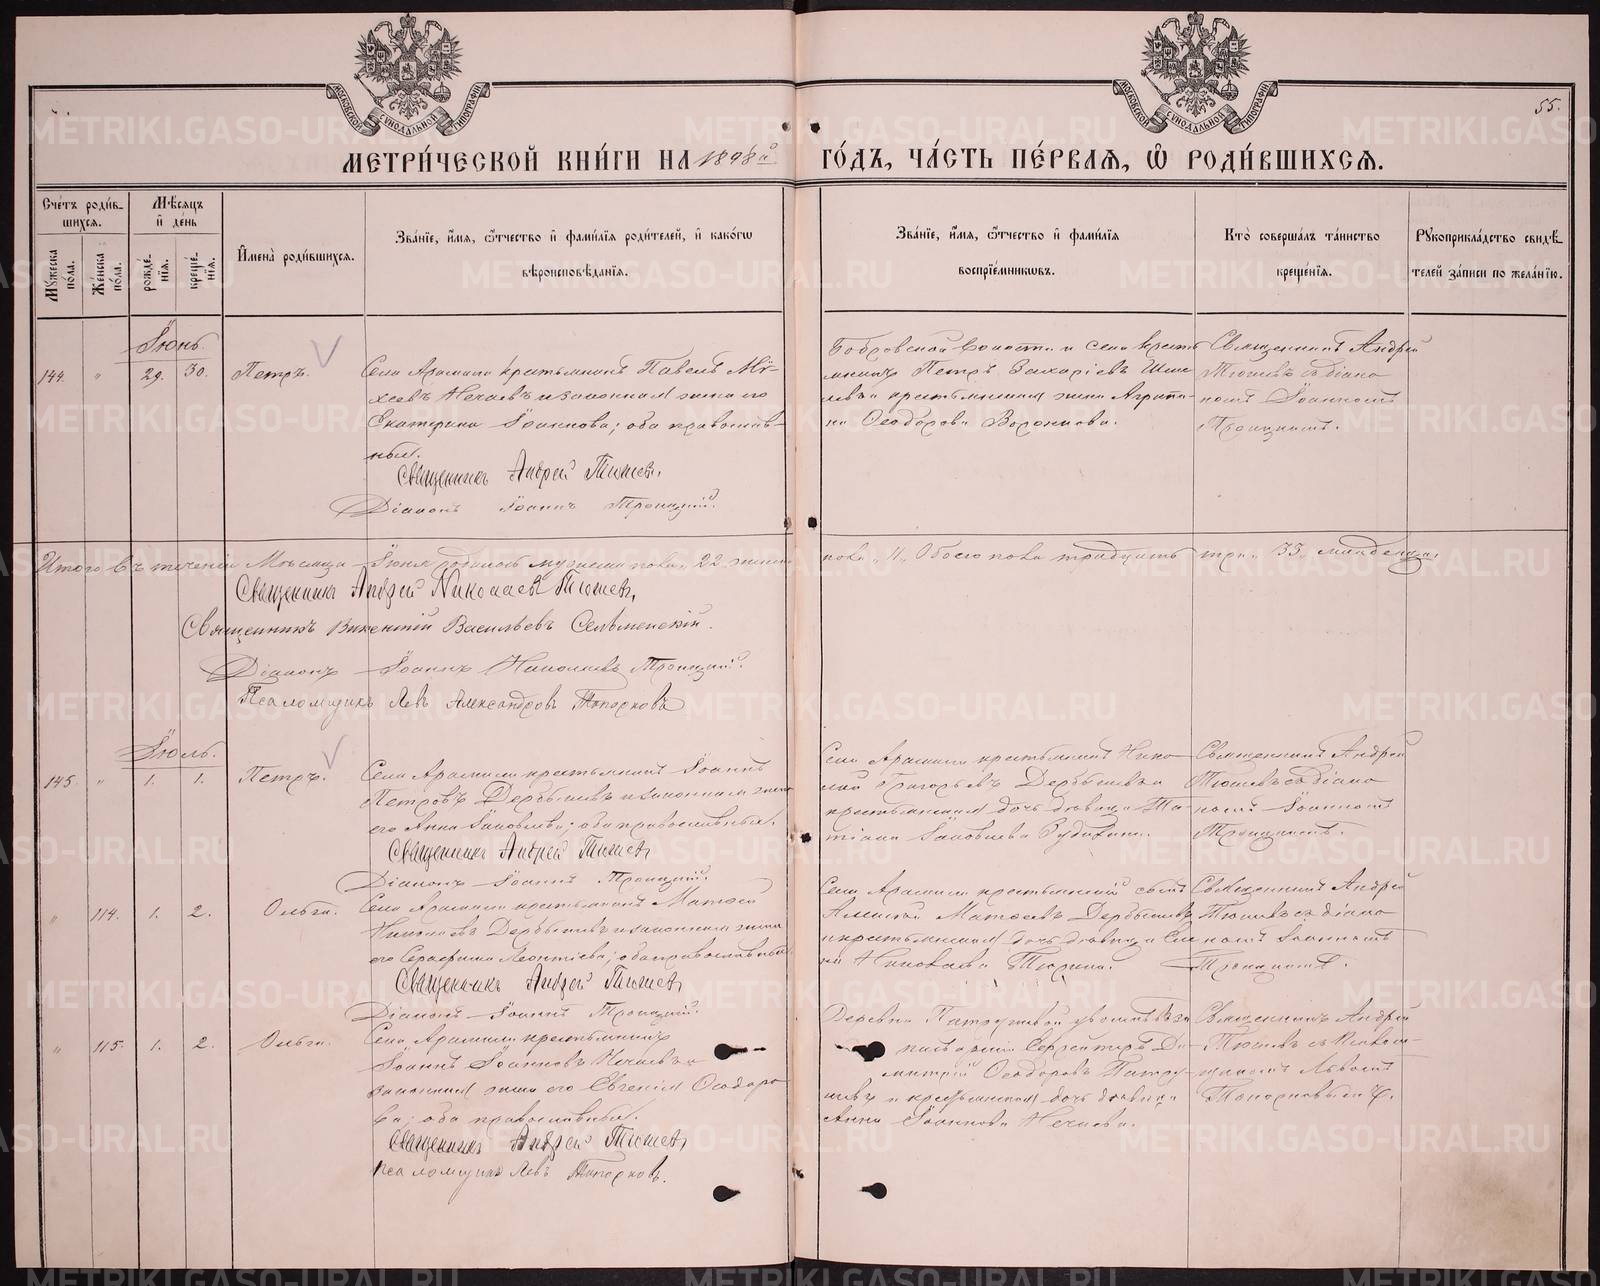 МОСКОВСКОЙ СѴНОДАЛЬНОЙ ТИПОГРАФІИ
МОСКОВСКОЙ СѴНОДАЛЬНОЙ ТИПОГРАФІИ
55.
МЕТРИ́ЧЕСКОЙ КНИ́ГИ НА 1898й ГО́ДЪ, ЧА́СТЬ ПЕ́РВАЯ, Ѡ РОДИ́ВШИХСЯ.
Сче́тъ роди́вшихся.
Мѣ́сяцъ и де́нь
Му́жеска по́ла.
Же́нска по́ла.
рожде́нія.
креще́нія.
Имена̀ роди́вшихся.
Зва́ніе, и́мя, ѻ҆́тчество и фами́лія роди́телей, и како́гѡ вѣроисповѣ́данія.
Зва́ніе, и́мя, ѻ҆́тчество и фами́лія воспріе́мниковъ.
Кто̀ соверша́лъ та́инство креще́нія.
Рукоприкла́дство свидѣ́телей за́писи по жела́нію.
Іюнь
144. " 29. 30. Петръ.
Села Арамили крестьянинъ Павелъ Мѵ-
хеевъ Нечаевъ и законная жена его
Екатерина Іоаннова; оба православ-
ные.
Священникъ Андрей Тюшевъ,
Діаконъ Іоаннъ Троицкій.
Бобровской волости и села кресть
янинъ Петръ Захаріевъ
крестьянская жена Агрипи-
на Ѳеодорова Воронцова.
Священникъ Андрей
Тюшевъ съ діако
номъ Іоанномъ
Троицкимъ.
Итого въ теченіи Мѣсяца Іюня родилось мужеска пола 22 женск пола "11" Обоего пола тридцать три 33 младенца.
Священникъ Андрей Николаевъ Тюшевъ,
Священникъ Викентій Васильевъ Сельменскій.
Діаконъ Іоаннъ Николаевъ Троицкій.
Псаломщикъ Левъ Александровъ Топорковъ
Іюль.
145. " 1. 1. Петръ.
Села Арамили крестьянинъ Іоаннъ
Петровъ Дербышевъ и законная жена
его Анна Іаковлева; оба православные.
Священникъ Андрей Тюшевъ
Діаконъ Іоаннъ Троицкій.
Села Арамили крестьянинъ Нико-
лай Григорьевъ Дербышевъ и
крестьянская дочь дѣвица Та-
тіана Іаковлева
Священникъ Андрей
Тюшевъ съ діако
номъ Іоанномъ
Троицкимъ.
" 114. 1. 2. Ольга.
Села Арамили крестьянинъ Матѳей
Николаевъ Дербышевъ и законная жена
его Серафима Леонтіева; оба православные
Священникъ Андрей Тюшевъ
Діаконъ Іоаннъ Троицкій.
Села Арамили крестьянскій сынъ
Алексѣй Матѳеевъ Дербышевъ
и крестьянская дочь дѣвица Еле
на Николаева Тюрина.
Священникъ Андрей
Тюшевъ съ діако
номъ Іоанномъ
Троицкимъ.
" 115. 1. 2. Ольга.
Села Арамили крестьянинъ
Іоаннъ Іоанновъ Нечаевъ и
законная жена его Евгенія Ѳеодоро
ва; оба православные.
Священникъ Андрей Тюшевъ
Псаломщикъ Левъ Топорковъ.
Деревни Патрушевой уволен. въ за
пасъ арміи Ди-
митрій Ѳеодоровъ Патру-
шевъ и крестьянская дочь дѣвица
Анна Іоаннова Нечаева.
Священникъ Андрей
Тюшевъ съ Псалом-
щикомъ Львомъ
Топорковымъ.
METRIKI.GASO-URAL.RU